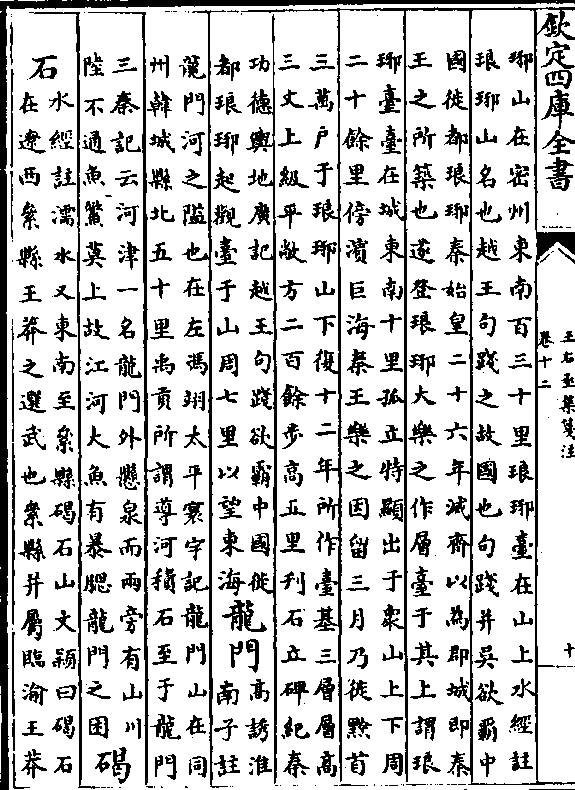 欽定四庫全書
王右丞集箋注
卷十二
十
琊山在密州東南百三十里琅琊臺在山上水經註
琅琊山名也越王句踐之故國也句踐并吳欲霸中
國徙都琅琊秦始皇二十六年滅齊以為郡城即秦
王之所築也遂登琅琊大樂之作層臺于其上謂琅
琊臺臺在城東南十里孤立特顯出于衆山上下周
二十餘里傍濱巨海秦王樂之因留三月乃徙黔首
三萬户于琅琊山下復十二年所作臺基三層層高
三丈上級平敞方二百餘步高五里刊石立碑紀秦
功德輿地廣記越王句踐欲霸中國徙
都琅琊起觀臺于山周七里以望東海
龍門
高誘淮
南子註
龍門河之隘也在左馮翊太平寰宇記龍門山在同
州韓城縣北五十里禹貢所謂導河積石至于龍門
三秦記云河津一名龍門外懸泉而兩旁有山川
陸不通魚鱉莫上故江河大魚有暴腮龍門之困
碣
石
水經註濡水又東南至絫縣碣石山文穎曰碣石
在遼西絫縣王莽之選武也絫縣并屬臨渝王莽